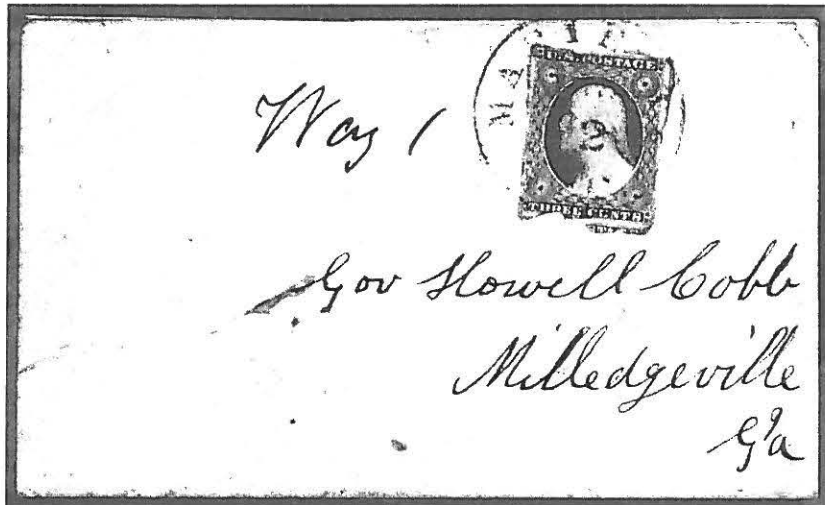 Way 1
U.S. POSTAGE
THREE CENTS
Gov Howell Cobb
Milledgeville
Ga